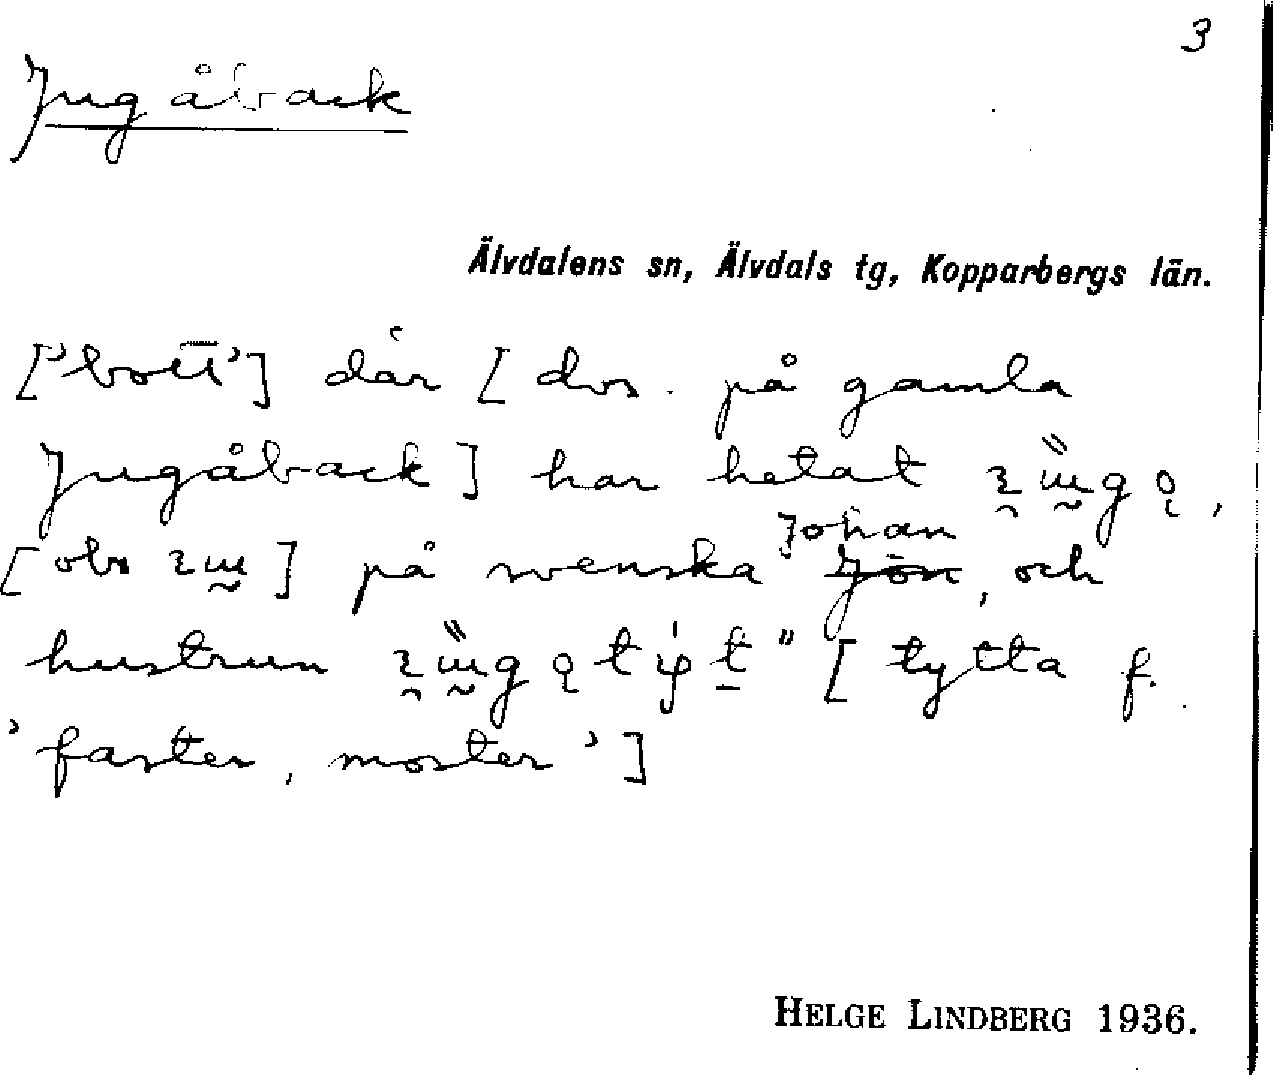 3
Jugåback
Älvdalens sn, Älvdals tg, Kopparbergs län.
['bott'] där [dvs. på gamla
Jugåback] har hetat
[obs] på svenska Johan, och
hustrun " [tytta f.
'faster, moster']
HELGE LINDBERG 1936.